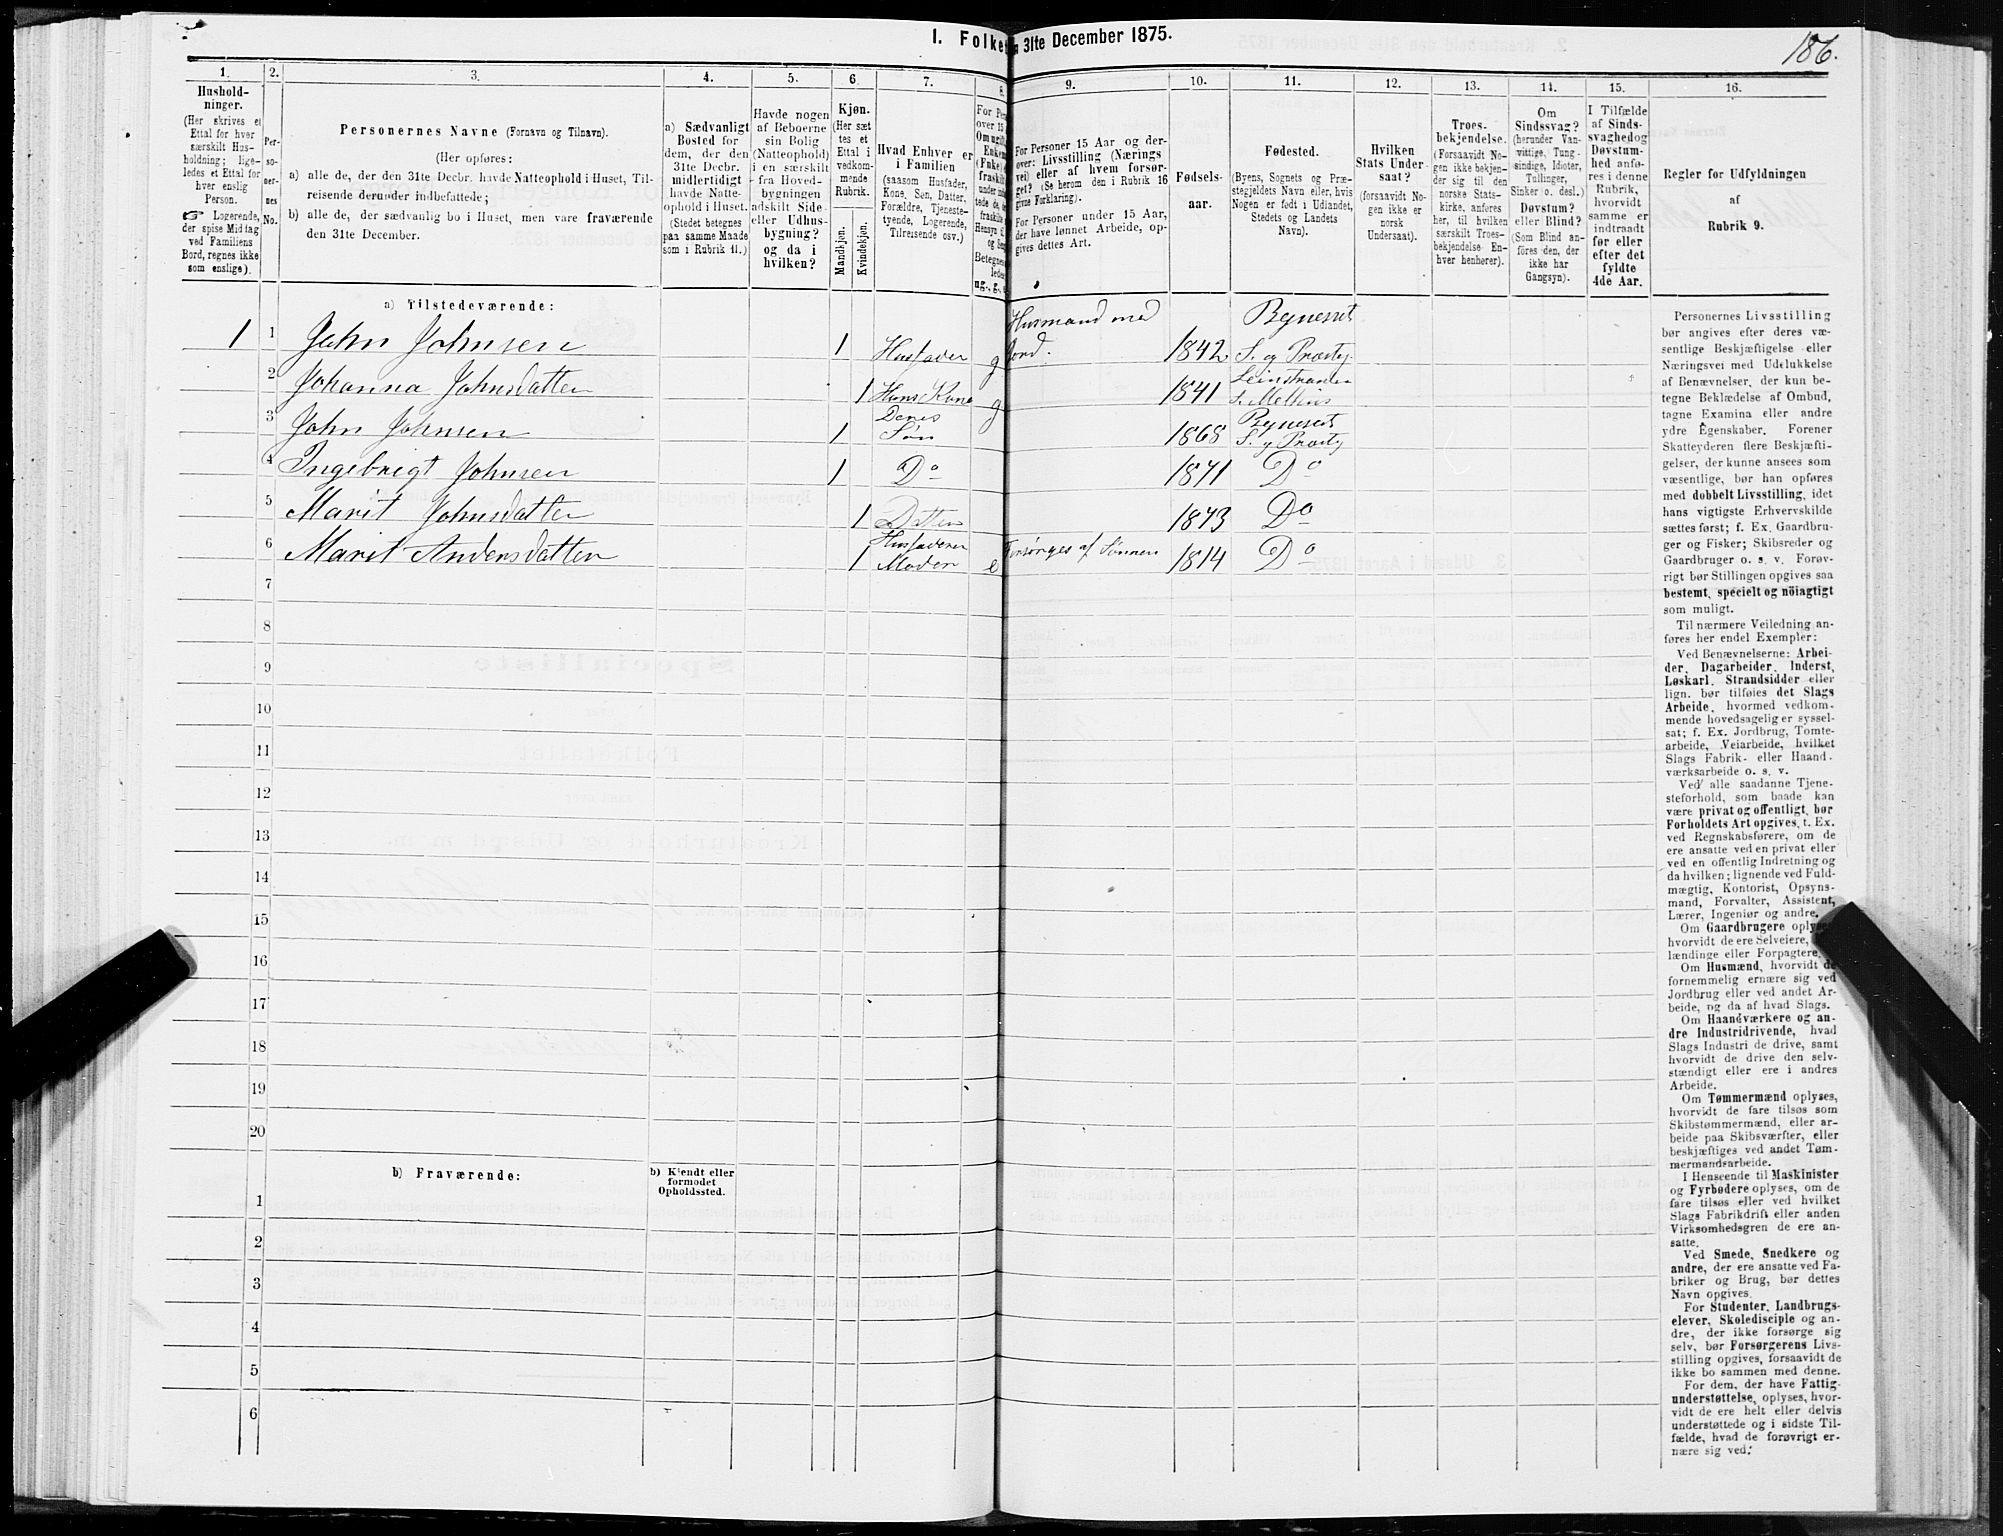 1. Folke
n 31te December 1875.
186.
1.
2.
3.
4.
5.
6
7.
8.
9.
10.
11.
12.
13.
14.
15.
16.
Hushold-
ninger.
(Her skrives et
Ettal for hver
særskilt Hus-
holdning; lige-
ledes et Ettal for
hver enslig
Person.
☞ Logerende,
der spise Middag
ved Familiens
Bord, regnes ikke
som enslige).
Per-
so-
ner-
nes
No.
Personernes Navne (Fornavn og Tilnavn).
(Her opføres:
a) alle de, der den 31te Decbr. havde Natteophold i Huset, Til-
reisende derunder indbefattede;
b) alle de, der sædvanlig bo i Huset, men vare fraværende
den 31te December.
a) Sædvanligt
Bosted for
dem, der den
31te Decbr.
midlertidigt
havde Natte-
ophold i Huset.
(Stedet betegnes
paa samme Maade
som i Rubrik 11.)
Havde nogen
af Beboerne
sin Bolig
(Natteophold)
i en særskilt
fra Hoved-
bygningen
adskilt Side-
eller Udhus-
bygning?
og da i
hvilken?
Kjøn.
(Her sæt
tes et
Ettal i
vedkom-
mende
Rubrik.
Mandkjøn.
Kvindekjøn.
Hvad Enhver er
i Familien
(saasom Husfader,
Kone, Søn, Datter,
Forældre, Tjeneste-
tyende, Logerende,
Tilreisende osv.)
For Pers
over 15
Om ugift
Enkem
(Enke)
fraskilt
under
tede de,
fraskilte
Hensyn
og Sen
Betegnes
ledes
ug., g.,
For Personer 15 Aar og der-
over: Livsstilling (Nærings
vei) eller af hvem forsør-
get? (Se herom den i Rubrik 16
givne Forklaring).
For Personer under 15 Aar,
der have lønnet Arbeide, op-
gives dettes Art.
Fødsels-
aar.
Fødested.
(Byens, Sognets og Præ-
stegjeldets Navn eller, hvis
Nogen er født i Udlandet,
Stedets og Landets
Navn).
Hvilken
Stats Under-
saat?
(forsaavidt No-
gen ikke er
norsk
Undersaat).
Troes-
bekjendelse.
(Forsaavidt No-
gen ikke bekjen-
der sig til den
norske Stats-
kirke, anføres
her, til hvilken
særskilt Troes-
bekjendelse En-
hver henhører).
Om
Sindssvag?
(herunder Van-
vittige, Tung-
sindige, Idioter,
Tullinger,
Sinker o. desl.)
Døvstum?
eller Blind?
(Som Blind an-
føres den, der
ikke har
Gangsyn).
I Tilfælde
af Sinds-
svaghed og
Døvstum-
hed anfø-
res i denne
Rubrik,
hvorvidt
samme er
indtraadt
før eller
efter det
fyldte
4de Aar.
Regler for Udfyldningen
af
Rubrik 9.
a) Tilstedeværende:
1 1 John Johnsen 1 Husfader g Husmand med Jord. 1842 Bynesset S. og Præstg.
2 Johanna Johnsdatter 1 Hans Kone g 1841 Leinstranden S. Melhus
3 John Johnsen 1 Deres Søn 1868 Bynesset S. og Præstg
4 Ingebrigt Johnsen 1 Do 1871 Do
5 Marit Johnsdatter 1 Datter 1873 Do
6 Marit Andersdatter 1 Husfaderens Moder e Forsørges af Sønnen 1814 Do
7
8
9
10
11
12
13
14
15
16
17
18
19
20
b) Fraværende:
b) Kjendt eller
formodet
Opholdssted.
1
2
3
4
5
6
Personernes Livsstilling
bør angives efter deres væ-
sentlige Beskjæftigelse eller
Næringsvei med Udelukkelse
af Benævnelser, der kun be-
tegne Beklædelse af Ombud,
tagne Examina eller andre
ydre Egenskaber. Forener
Skatteyderen flere Beskjæfti-
gelser, der kunne ansees som
væsentlige, bør han opføres
med dobbelt Livsstilling, idet
hans vigtigste Erhvervskilde
sættes først; f. Ex. Gaardbru-
ger og Fisker; Skibsreder og
Gaardbruger o. s. v. Forøv-
rigt bør Stillingen opgives saa
bestemt, specielt og nöiagtigt
som muligt.
Til nærmere Veiledning an-
føres her endel Exempler:
Ved Benævnelserne: Arbei-
der, Dagarbeider, Inderst,
Løskarl, Strandsidder eller
lign. bør tilføies det Slags
Arbeide, hvormed vedkom-
mende hovedsagelig er syssel-
sat; f. Ex. Jordbrug, Tomte-
arbeide, Veiarbeide, hvilket
Slags Fabrik- eller Haand-
værksarbeide o. s. v.
Ved alle saadanne Tjene-
steforhold, som baade kan
være privat og offentligt, bør
Forholdets Art opgives, t. Ex.
ved Regnskabsførere, om de
ere ansatte ved en privat eller
ved en offentlig Indretning og
da hvilken; lignende ved Fuld-
mægtig, Kontorist, Opsyns-
mand, Forvalter, Assistent,
Lærer, Ingeniør og andre.
Om Gaardbrugere oplyses
hvorvidt de ere Selveiere,
lændinge eller Forpagtere,
Om Husmænd, hvorvidt de
fornemmelig ernære sig ved
Jordbrug eller ved andet Ar-
beide, og da af hvad Slags.
Om Haandværkere og an-
dre Industridrivende, hvad
Slags Industri de drive, samt
hvorvidt de drive den selv-
stændigt eller ere i andres
Arbeide.
Om Tømmermænd oplyses,
hvorvidt de fare tilsøs som
Skibstømmermænd, eller ar-
beide paa Skibsværfter, eller
beskjæftiges ved andet Tøm-
mermandsarbeide.
I Henseende til Maskinister
og Fyrbødere oplyses, om de
fare tilsøs eller ved hvilket
Slags Fabrikdrift eller anden
Virksomhedsgren de ere an-
satte.
Ved Smede, Snedkere og
andre, der ere ansatte ved Fa-
briker og Brug, bør dettes
Navn opgives.
For Studenter, Landbrugs-
elever, Skoledisciple og an-
dre, der ikke forsørge sig
selv, bør Forsørgerens Livs-
stilling opgives, forsaavidt de
ikke bo sammen med denne.
For dem, der have Fattig-
understøttelse, oplyses, hvor-
vidt de ere helt eller delvis
understøttede og i sidste Til-
fælde, hvad de forøvrigt er-
nære sig ved.